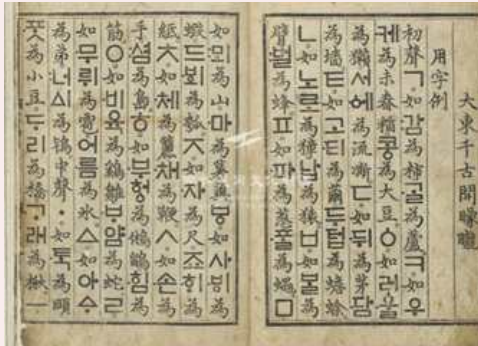 大東千古開朦朧
用字例
初聲ㄱ如감為柿ᄀᆞᆯ為蘆ㅋ如우
케為未舂稻콩為大豆ㆁ如러울
為獺서에為流凘ㄷ如뒤為茅담
為墻ㅌ如고티為繭두텁為蟾蜍
ㄴ如노로為獐납為猿ㅂ如ᄇᆞᆯ為
臂벌為蜂ㅍ如파為葱ᄑᆞᆯ為蠅ㅁ
如뫼為山마為薯藇ㅸ如사ᄫᅵ為
蝦드ᄫᅴ為瓠ㅈ如자為尺죠ᄒᆡ為
紙ㅊ如체為籭채為鞭ㅅ如손為
手셤為島ㅎ如부헝為鵂鶹힘為
筋ㅇ如비육為鷄雛ᄇᆞ얌為蛇ㄹ
如무뤼為雹어름為氷ㅿ如아ᅀᆞ
為弟너ᅀᅵ為鴇中聲ㆍ如ᄐᆞᆨ為頤
ᄑᆞᆺ為小豆ᄃᆞ리為橋ᄀᆞ래為楸ㅡ